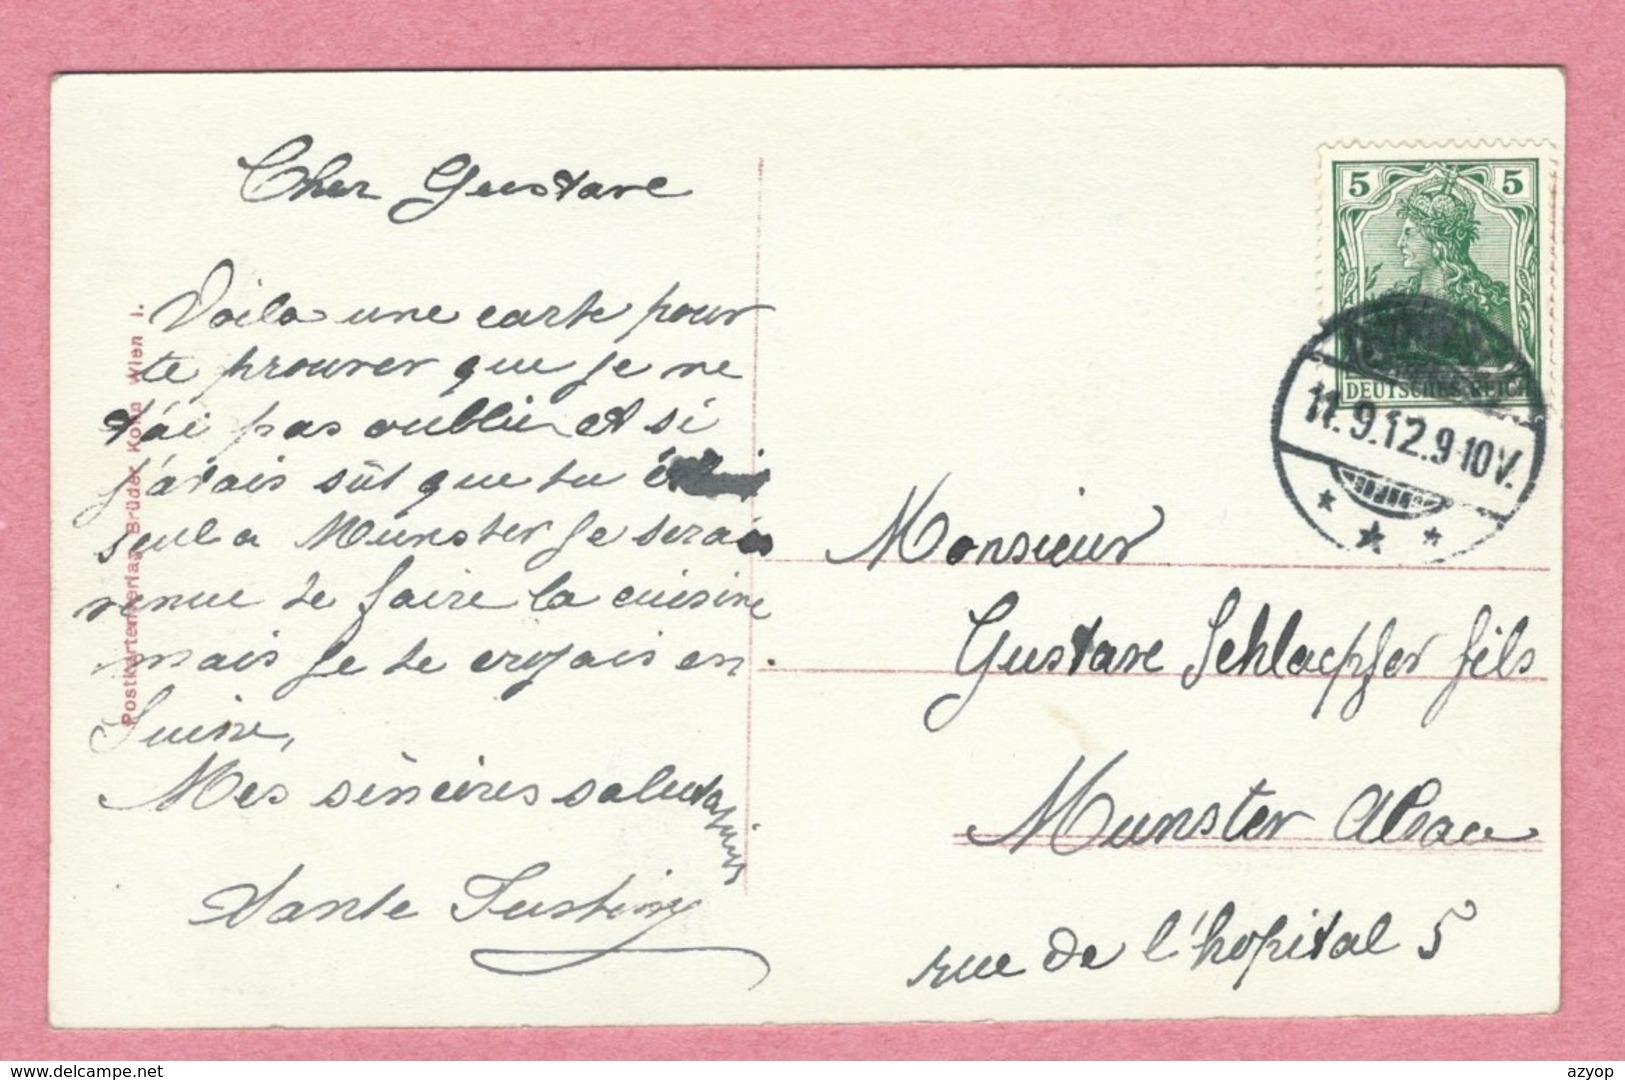 Cher Gustave
Voila une carte pour
te prouver que je ne
t'ai pas oublié et si
j'avais sût que tu étais
seul a Munster je serais
venue te faire la cuisine
mais je te croyais en
Suisse,
Mes sincères salutations
Tante Justine
Postkartenverlag Brüder Kohn Wien I.
5 5
DEUTSCHES REICH
11.9.12.9-10V.
Monsieur
Gustave Schlaepfer fils
Munster Alsace
rue de l'hopital 5
www.delcampe.net
azyop